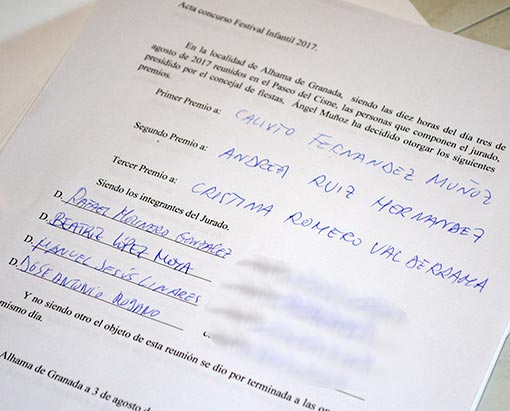 Acta concurso Festival Infantil 2017.
En la localidad de Alhama de Granada, siendo las diez horas del día tres de
agosto de 2017 reunidos en el Paseo del Cisne, las personas que componen el jurado,
presidido por el concejal de fiestas, Ángel Muñoz ha decidido otorgar los siguientes
premios.
Primer Premio a: CALIXTO FERNANDEZ MUÑOZ
Segundo Premio a: ANDREA RUIZ HERNANDEZ
Tercer Premio a: CRISTINA ROMERO VALDERRAMA
Siendo los integrantes del Jurado.
D. RAFAEL MOLINERO GONZALEZ
D. BEATRIZ LÓPEZ MOYA
D. MANUEL JESÚS LINARES
D. JOSE ANTONIO
Y no siendo otro el objeto de esta reunión se dio por terminada a las
mismo día.
Alhama de Granada a 3 de agosto de